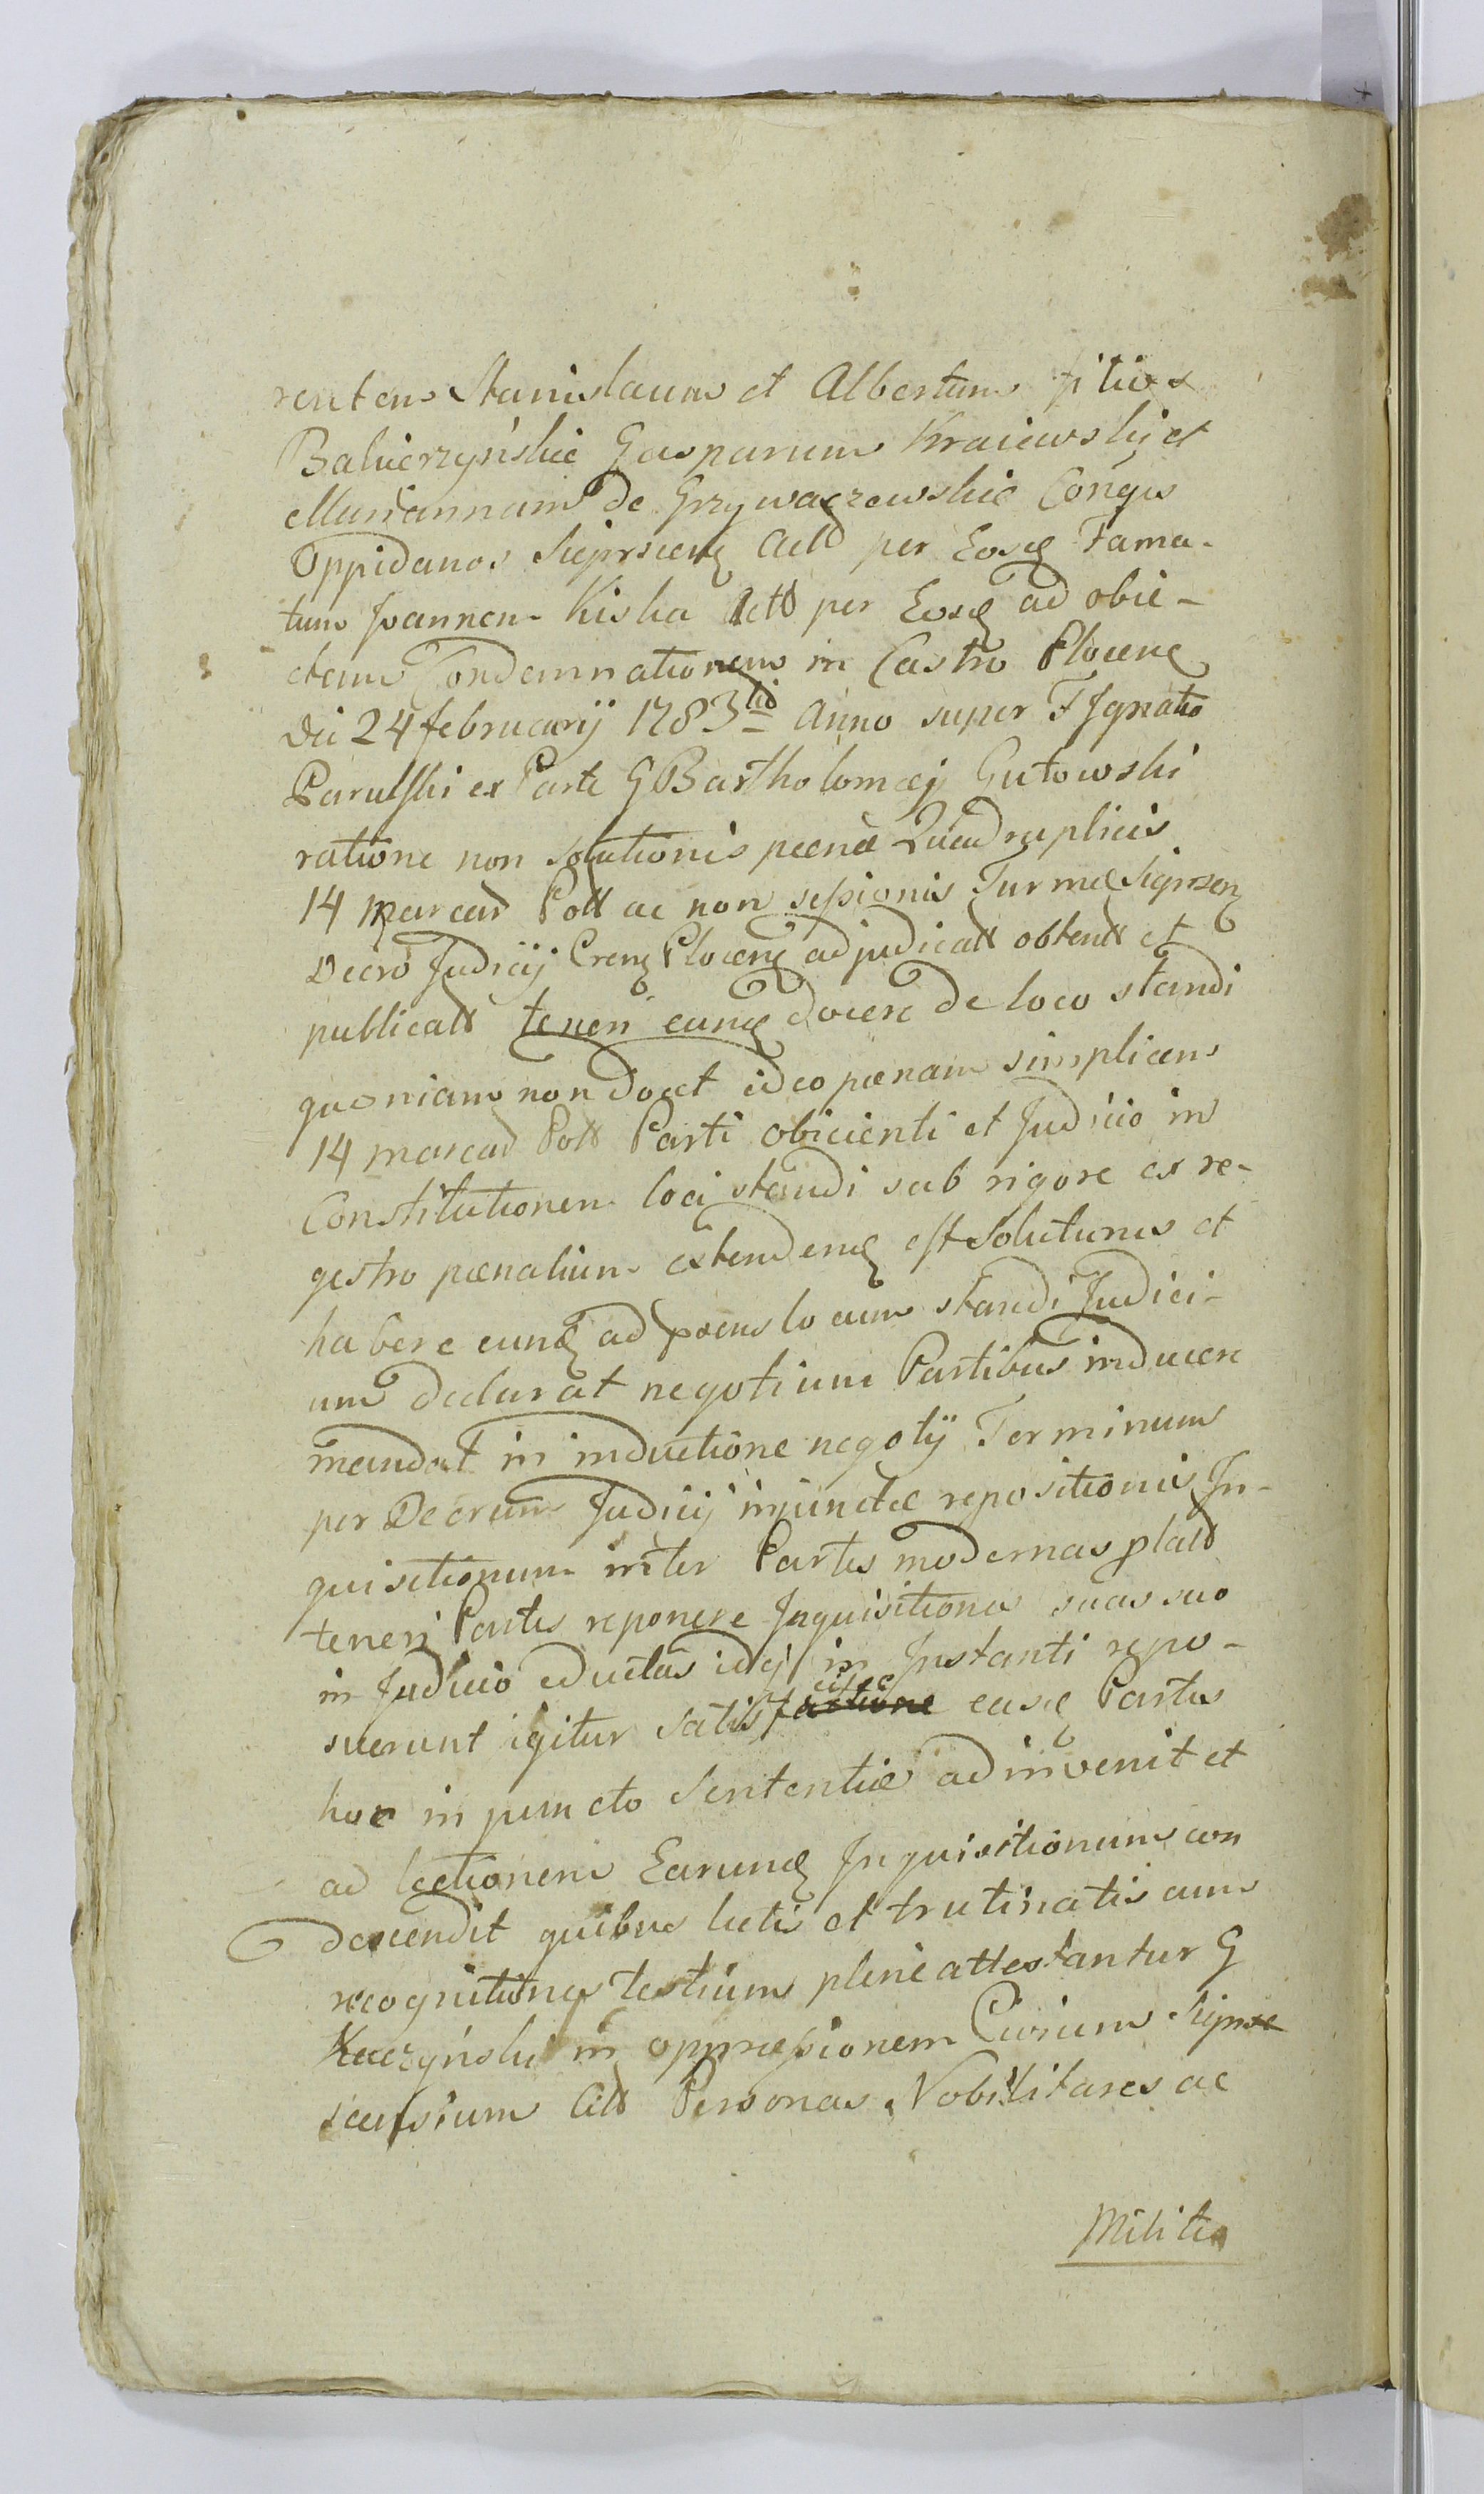 rentem Stanislaum et Albertum filios
Balwierzyńskie Gasparum Kraiewskij et
Mariannam de Grzywaczewskie Conges
Oppidanos Sieprscenses Actd per Eosd Fama-
tum Joannem Kiska Actd per Eosd ad obie-
ctam Condemnationem in Castro Plocenẽ
die 24 februarij 1783tio Anno super F Ignatio
Parulski ex Parte G Bartholomæj Gutowski
ratione non solutionis pœnæ Quadruplicis
14 marcar Poll ac non sessionis Turmæ Sieprscen
Decro Judicij Cren Plocen adjudicatt obtentt et
publicatt teneri eund docere de loco standi
quoniam non docet ideo pœnam simplicem
14 marcar Poll Parti obicienti et Judicio in
Constitutionem loci standi sub rigore ex re-
gestro pœnalium extenden est soluturus et
habere eund ad præns locum standi Judici-
um declarat negotium Partibus inducere
mandat in inductione negotij Terminum
per Decrum Judicij injunctæ repositionis In-
quisitionum inter Partes modernas platt
teneri Partes reponere Inquisitiones suas suo
in Judicio eductas idq in Instanti repo-
suerunt igitur satisfactione cisse easd Partes
hoc in puncto Sententiæ adinvenit et
ad lectionem Earund Inquisitionum con
descendit quibus lectis et trutinatis cum
recognitiones testium plene attestantur G
Kaczyński in oppressionem Civium Sieprsc
scensium Citt Personas Nobilitares ac
Milites